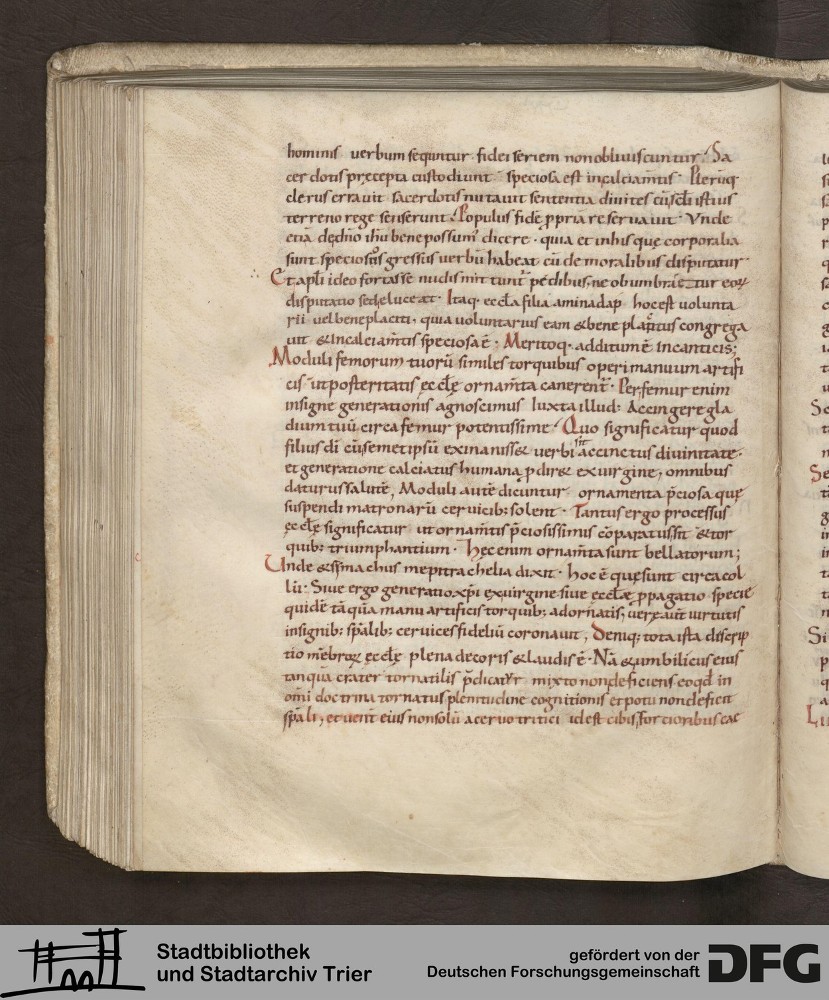 hominis verbum sequntur· fidei seriem non obliuiscuntur· Sa
cerdotis precepta custodiunt· speciosa est in calciam̄tis· Plerūq;
clerus errauit sacerdotis nutauit sententia diuites cū sc̄li istius
terreno rege senserunt· Populus fidē ppriā reseruauit· Vnde
etiā de dn̄o ih̄u bene possum᾽ dicere· quia et in his quę corporalia
sunt speciosos gressus verbū habeat cū de moralibus disputatur·
Et apl̄i ideo fortasse nudis mittunt᾽ pedibus, ne obumbraretur eoꝝ
disputatio sed eluceat· Itaq; eccl̄a filia aminadap hoc est volunta
rii vel beneplaciti, quia voluntarius eam & bene placitus congrega
uit & in calciam̄tis speciosa ē· Meritoq· additum ē in canticis;
Moduli femorum tuorū similes torquibus operi manuum artifi
cis· ut posteritatis ęccl̄ę ornam̄ta canerent᾽· Per femur enim
insigne generationis agnoscimus iuxta illud· Accingere gla
dium tuū circa femur potentissime· Quo significatur quod
filius dī cū semet ipsū exinanisset verbi sit accinctus diuinitate·
et generatione calciatus humana pdiret ex uirgine, omnibus
daturus salutē, Moduli autē dicuntur ornamenta p̄ciosa quę
suspendi matronarū ceruicib; solent· Tantus ergo processus
ęccl̄ę significatur ut ornam̄tis p̄ciosissimis cōparatus sit & tor
quib; triumphantium· Hęc enim ornam̄ta sunt bellatorum;
Unde & simmachus mepitrachelia dixit· hoc ē quę sunt circa col
lū· Siue ergo generatio xp̄i ex uirgine siue eccl̄ę ppagatio specie
quidē tāquā manu artificis torquib; adornatis, vere aut̄ virtutis
insignib; sp̄alib; ceruices fidelium coronauit, Deniq; tota ista discrip
tio m̄ebroꝝ ęccl̄ę plena decoris & laudis ē· Nā & umbilicus eius
tan quā crater tornatilis p̄dicat᾽ mixto non deficiens eo qd̄ in
om̄i doctrina tornatus plenitudine cognitionis et potu non deficit
sp̄ali, et uent̄ eius non solū aceruo tritici id est cibis fortioribus cae
Stadtbibliothek
und Stadtarchiv Trier
gefördert von der
Deutschen Forschungsgemeinschaft
DFG